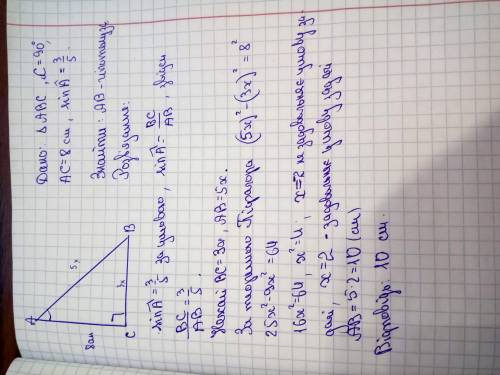 Дано: ΔABC, ∠C=90°,
AC=8 см, sin A = 3/5.
Знайти: AB - гіпотенузу
Розв'язання:
A
B
C
8см
5x
3x
sin A = 3/5 за умовою, sin A = BC/AB, звідси
BC/AB = 3/5.
Нехай BC=3x, AB=5x.
За теоремою Піфагора (5x)²-(3x)²=8²
25x²-9x²=64
16x²=64, x²=4, x=-2 не задовольняє умову за-
дачі, x=2 - задовольняє умову задачі
AB=5·2=10 (см)
Відповідь: 10 см.